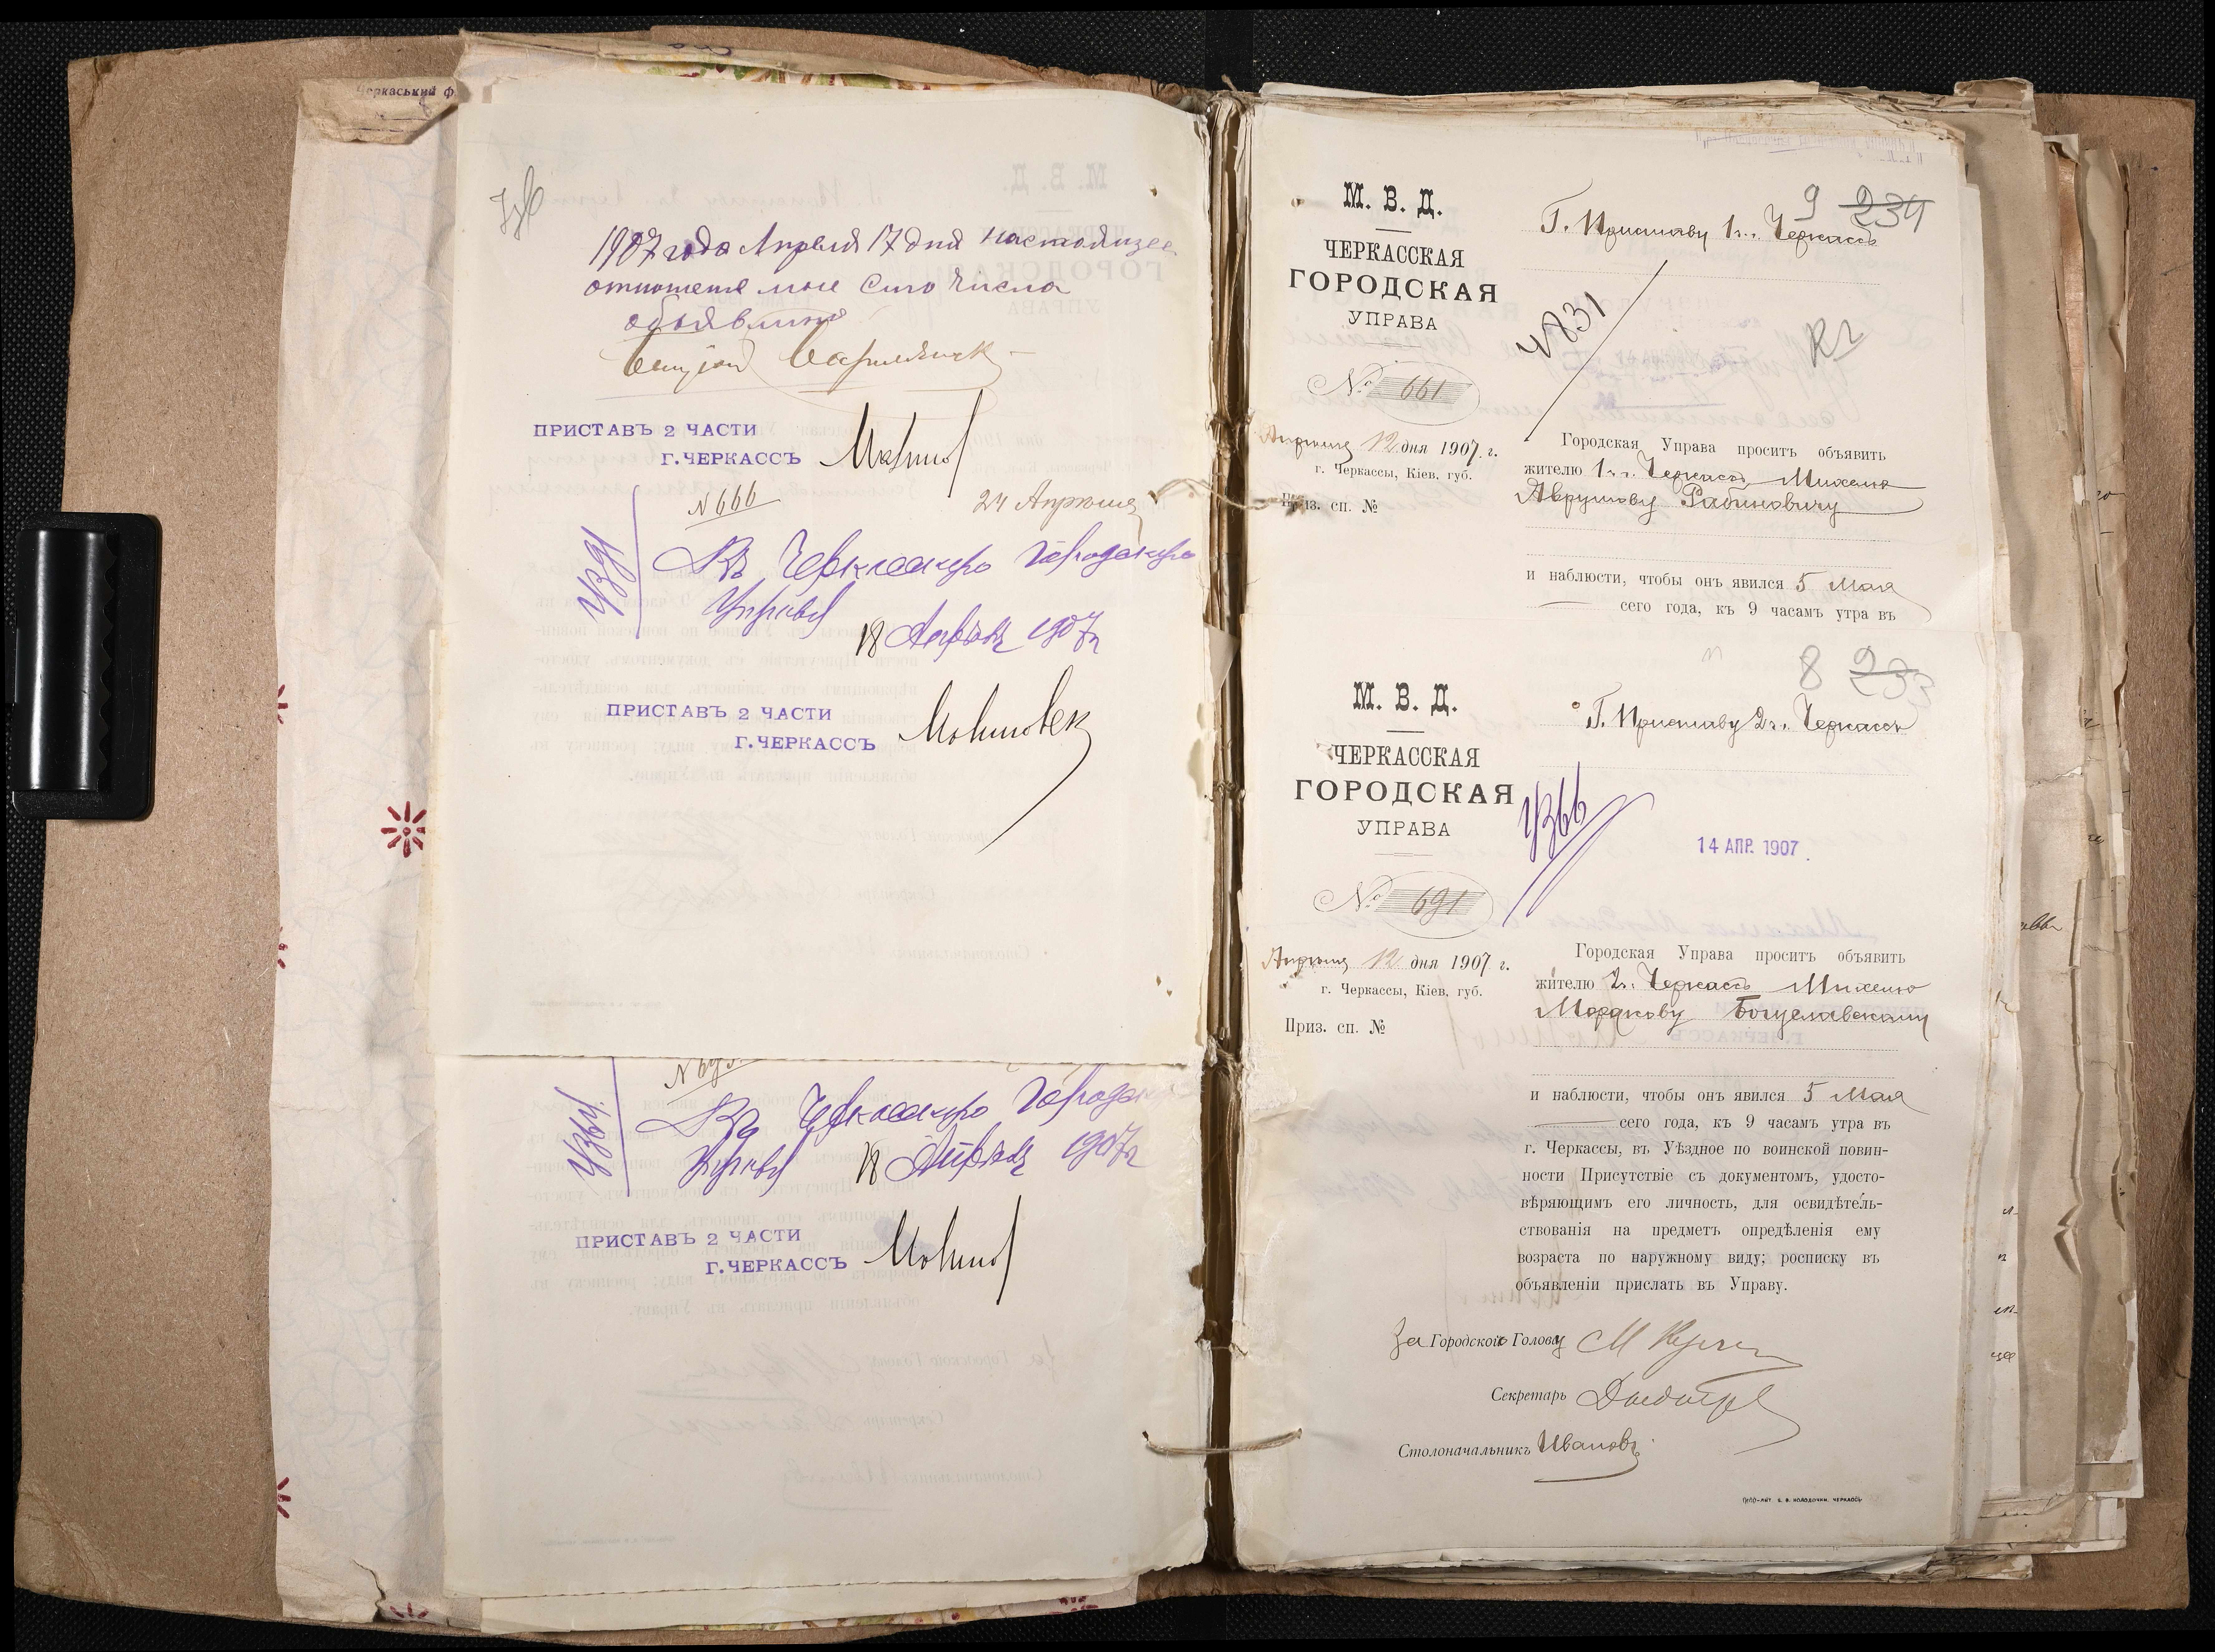 Черкаський ф
1907 года Апреля 17 дня настоящее
отношение мне сего числа
объявлено
ПРИСТАВЪ 2 ЧАСТИ
Г. ЧЕРКАССЪ
N 666
24 Апрѣля
Въ Черкасскую Городскую
Управу
18 Апрѣля 1907 г
ПРИСТАВЪ 2 ЧАСТИ
Г. ЧЕРКАССЪ
Въ Черкасскую Городск
Управу 18 Апрѣля 1907 г
ПРИСТАВЪ 2 ЧАСТИ
Г. ЧЕРКАССЪ
9 234
М. В. Д.
ЧЕРКАССКАЯ
ГОРОДСКАЯ
УПРАВА
№ 661
Апрѣля 12 дня 1907 г.
г. Черкассы, Кіев. губ.
Приз. сп. №
Г. Приставу 1 ч. г. Черкассъ
4831
Городская Управа проситъ объявить
жителю 1 ч. г. Черкассъ Михелю
Аврумову Рабиновичу
и наблюсти, чтобы онъ явился 5 Мая
сего года, къ 9 часамъ утра въ
8
М. В. Д.
ЧЕРКАССКАЯ
ГОРОДСКАЯ
УПРАВА
№ 691
Апрѣля 12 дня 1907 г.
г. Черкассы, Кіев. губ.
Приз. сп. №
Г. Приставу 2 ч. г. Черкассъ
4366
14 АПР. 1907
Городская Управа проситъ объявить
жителю 2 ч. г. Черкассъ Михелю
Мордкову Богуславскому
и наблюсти, чтобы онъ явился 5 Мая
сего года, къ 9 часамъ утра въ
г. Черкассы, въ Уѣздное по воинской повин-
ности Присутствіе съ документомъ, удосто-
вѣряющимъ его личность, для освидѣтель-
ствованія на предметъ опредѣленія ему
возраста по наружному виду; росписку въ
объявленіи прислать въ Управу.
За Городского Голову
Секретарь
Столоначальникъ Ивановъ